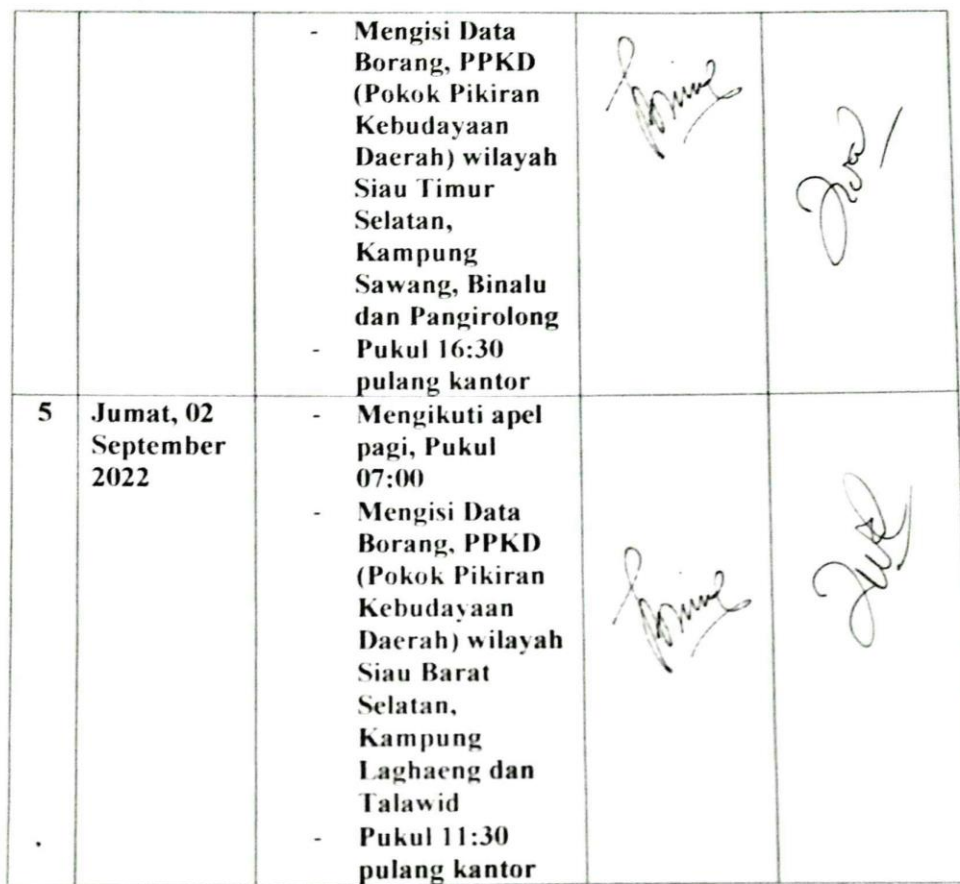 - Mengisi Data
Borang, PPKD
(Pokok Pikiran
Kebudayaan
Daerah) wilayah
Siau Timur
Selatan,
Kampung
Sawang, Binalu
dan Pangirolong
- Pukul 16:30
pulang kantor
5 Jumat, 02
September
2022
- Mengikuti apel
pagi, Pukul
07:00
- Mengisi Data
Borang, PPKD
(Pokok Pikiran
Kebudayaan
Daerah) wilayah
Siau Barat
Selatan,
Kampung
Laghaeng dan
Talawid
- Pukul 11:30
pulang kantor